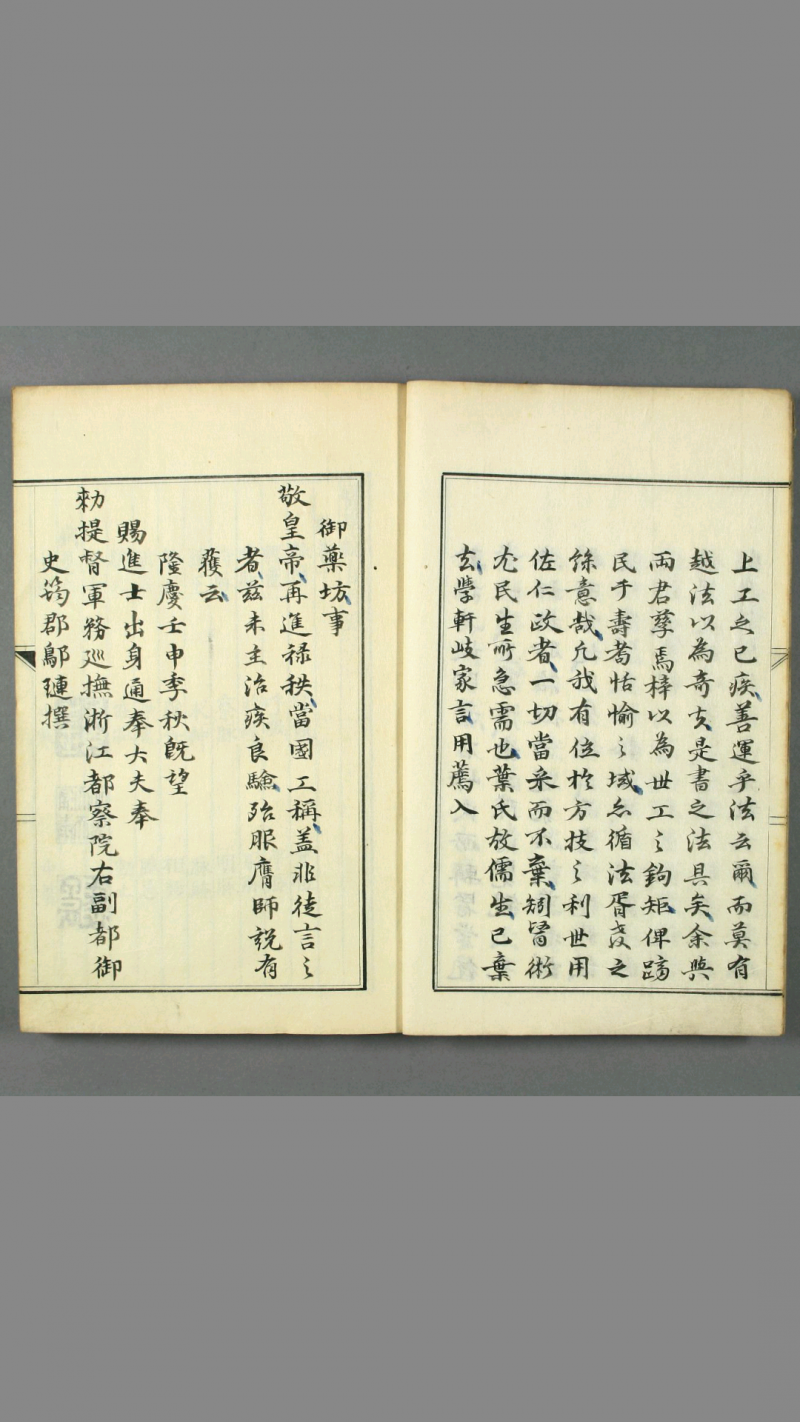 上工之已疾善運乎法云爾而莫有
越法以為奇支是書之法具矣余與
兩君孳焉梓以為世工之鉤矩俾躋
民于壽耉恬愉之域亦循法胥爻之
餘意哉凢我有位於方技之利世用
佐仁政者一切當采而不棄矧醫術
尤民生所急需也葉氏故儒生已棄
玄學軒岐家言用薦入
御藥坊事
敬皇帝再進祿秩當國工稱盖非徒言之
者茲未主治疾良驗殆服膺師説有
獲云
隆慶壬申季秋既望
賜進士出身通奉大夫奉
勑提督軍務巡撫浙江都察院右副都御
史筠郡鄔璉撰